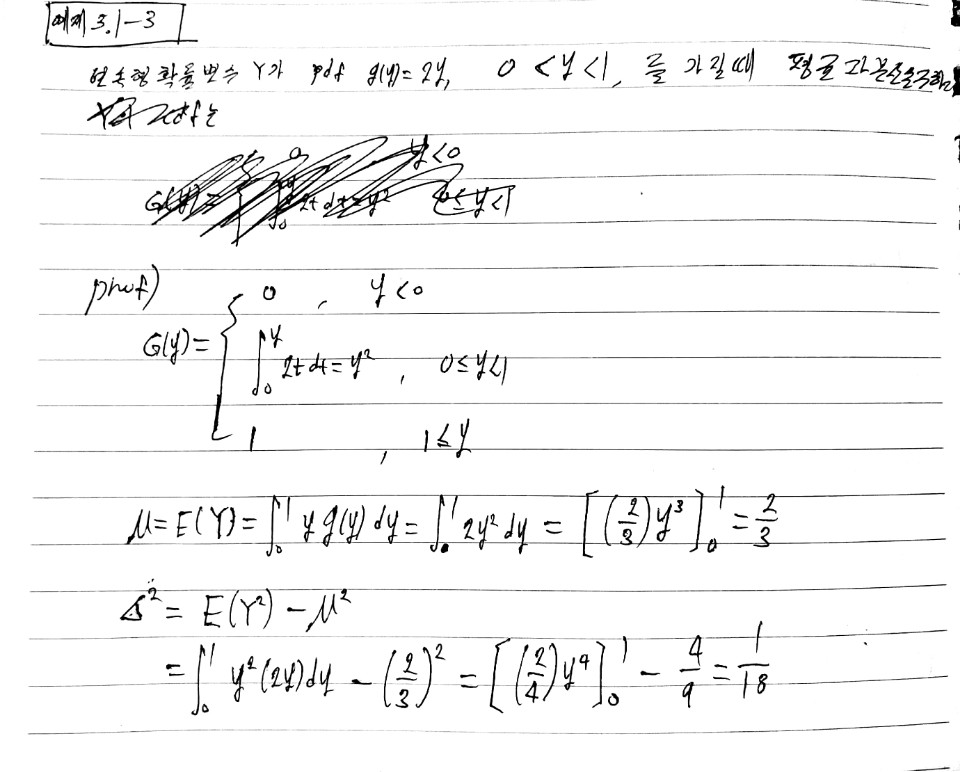 예제 3.1-3
연속형 확률변수 Y가 pdf g(y)=2y, 0<y<1, 를 가질때 평균과 분산을 구하
y<0
G(y)= { 0
∫₀^y 2t dt = y² 0≤y<1
proof)
G(y)= { 0 , y<0
∫₀^y 2t dt = y² , 0≤y<1
1 , 1≤y
μ = E(Y) = ∫₀¹ y g(y) dy = ∫₀¹ 2y² dy = [(2/3)y³]₀¹ = 2/3
σ² = E(Y²) - μ²
= ∫₀¹ y²(2y)dy - (2/3)² = [(2/4)y⁴]₀¹ - 4/9 = 1/18